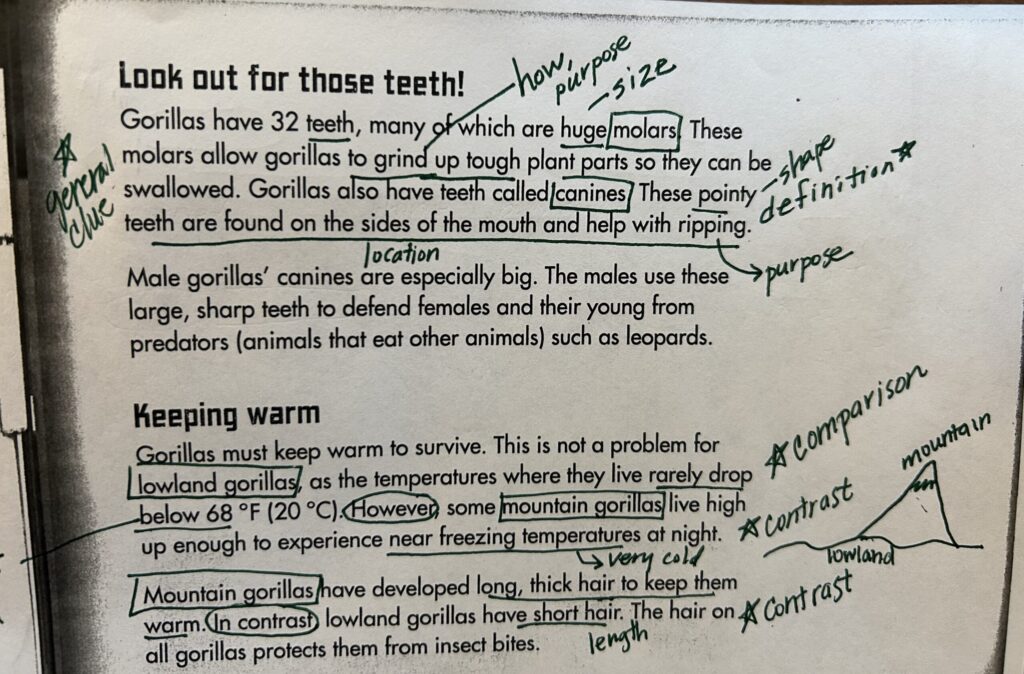 Look out for those teeth!
how,
purpose
size
Gorillas have 32 teeth, many of which are huge molars. These
molars allow gorillas to grind up tough plant parts so they can be
swallowed. Gorillas also have teeth called canines. These pointy
teeth are found on the sides of the mouth and help with ripping.
general
clue
shape
definition
location
purpose
Male gorillas' canines are especially big. The males use these
large, sharp teeth to defend females and their young from
predators (animals that eat other animals) such as leopards.
Keeping warm
Gorillas must keep warm to survive. This is not a problem for
lowland gorillas, as the temperatures where they live rarely drop
below 68 °F (20 °C). However, some mountain gorillas live high
up enough to experience near freezing temperatures at night.
comparison
contrast
mountain
lowland
very cold
Mountain gorillas have developed long, thick hair to keep them
warm. In contrast, lowland gorillas have short hair. The hair on
all gorillas protects them from insect bites.
contrast
length